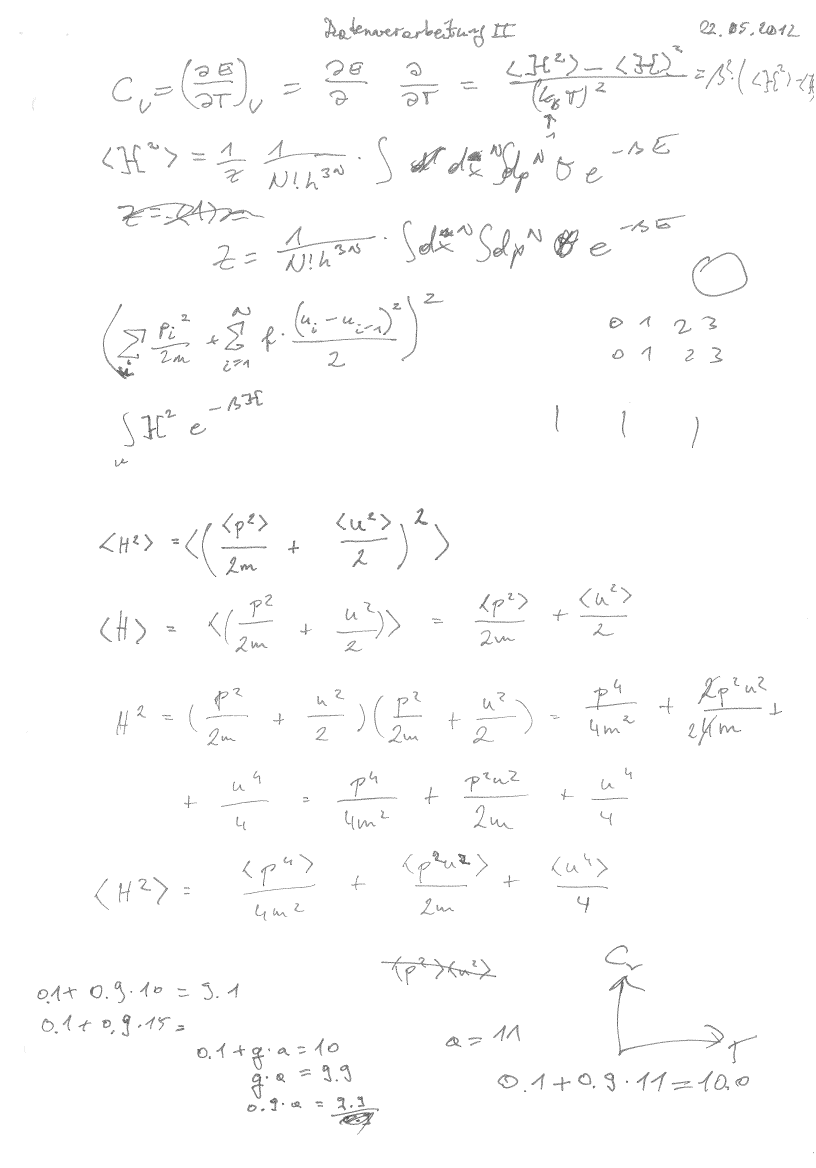 Datenverarbeitung II 22.05.2012
C_v = (∂E/∂T)_v = ∂E/∂ ∂/∂T = (<H²> - <H>²)/(k_B T)² = β²·(<H²> - <H
↑ 1
<H²> = 1/Z 1/(N! h^3N) · ∫ dx^N ∫dp^N σ e^-βE
Z =
Z = 1/(N! h^3N) · ∫dx^N ∫dp^N e^-βE
(∑_i p_i²/2m + ∑_{i=1}^N f · (u_i - u_{i-1})²/2)²
0 1 2 3
0 1 2 3
∫_u H² e^-βH
| | |
<H²> = <(<p²>/2m + <u²>/2)²>
<H> = <(p²/2m + u²/2)> = <p²>/2m + <u²>/2
H² = (p²/2m + u²/2)(p²/2m + u²/2) = p⁴/4m² + 2p²u²/2 4m +
+ u⁴/4 = p⁴/4m² + p²u²/2m + u⁴/4
<H²> = <p⁴>/4m² + <p²u²>/2m + <u⁴>/4
<p²><u²>
C_v
T
0.1 + 0.9·10 = 9.1
0.1 + 0,9·15 =
0.1 + g·a = 10
g·a = 9.9
0.9·a = 9.9
a = 11
0.1 + 0.9·11 = 10.0